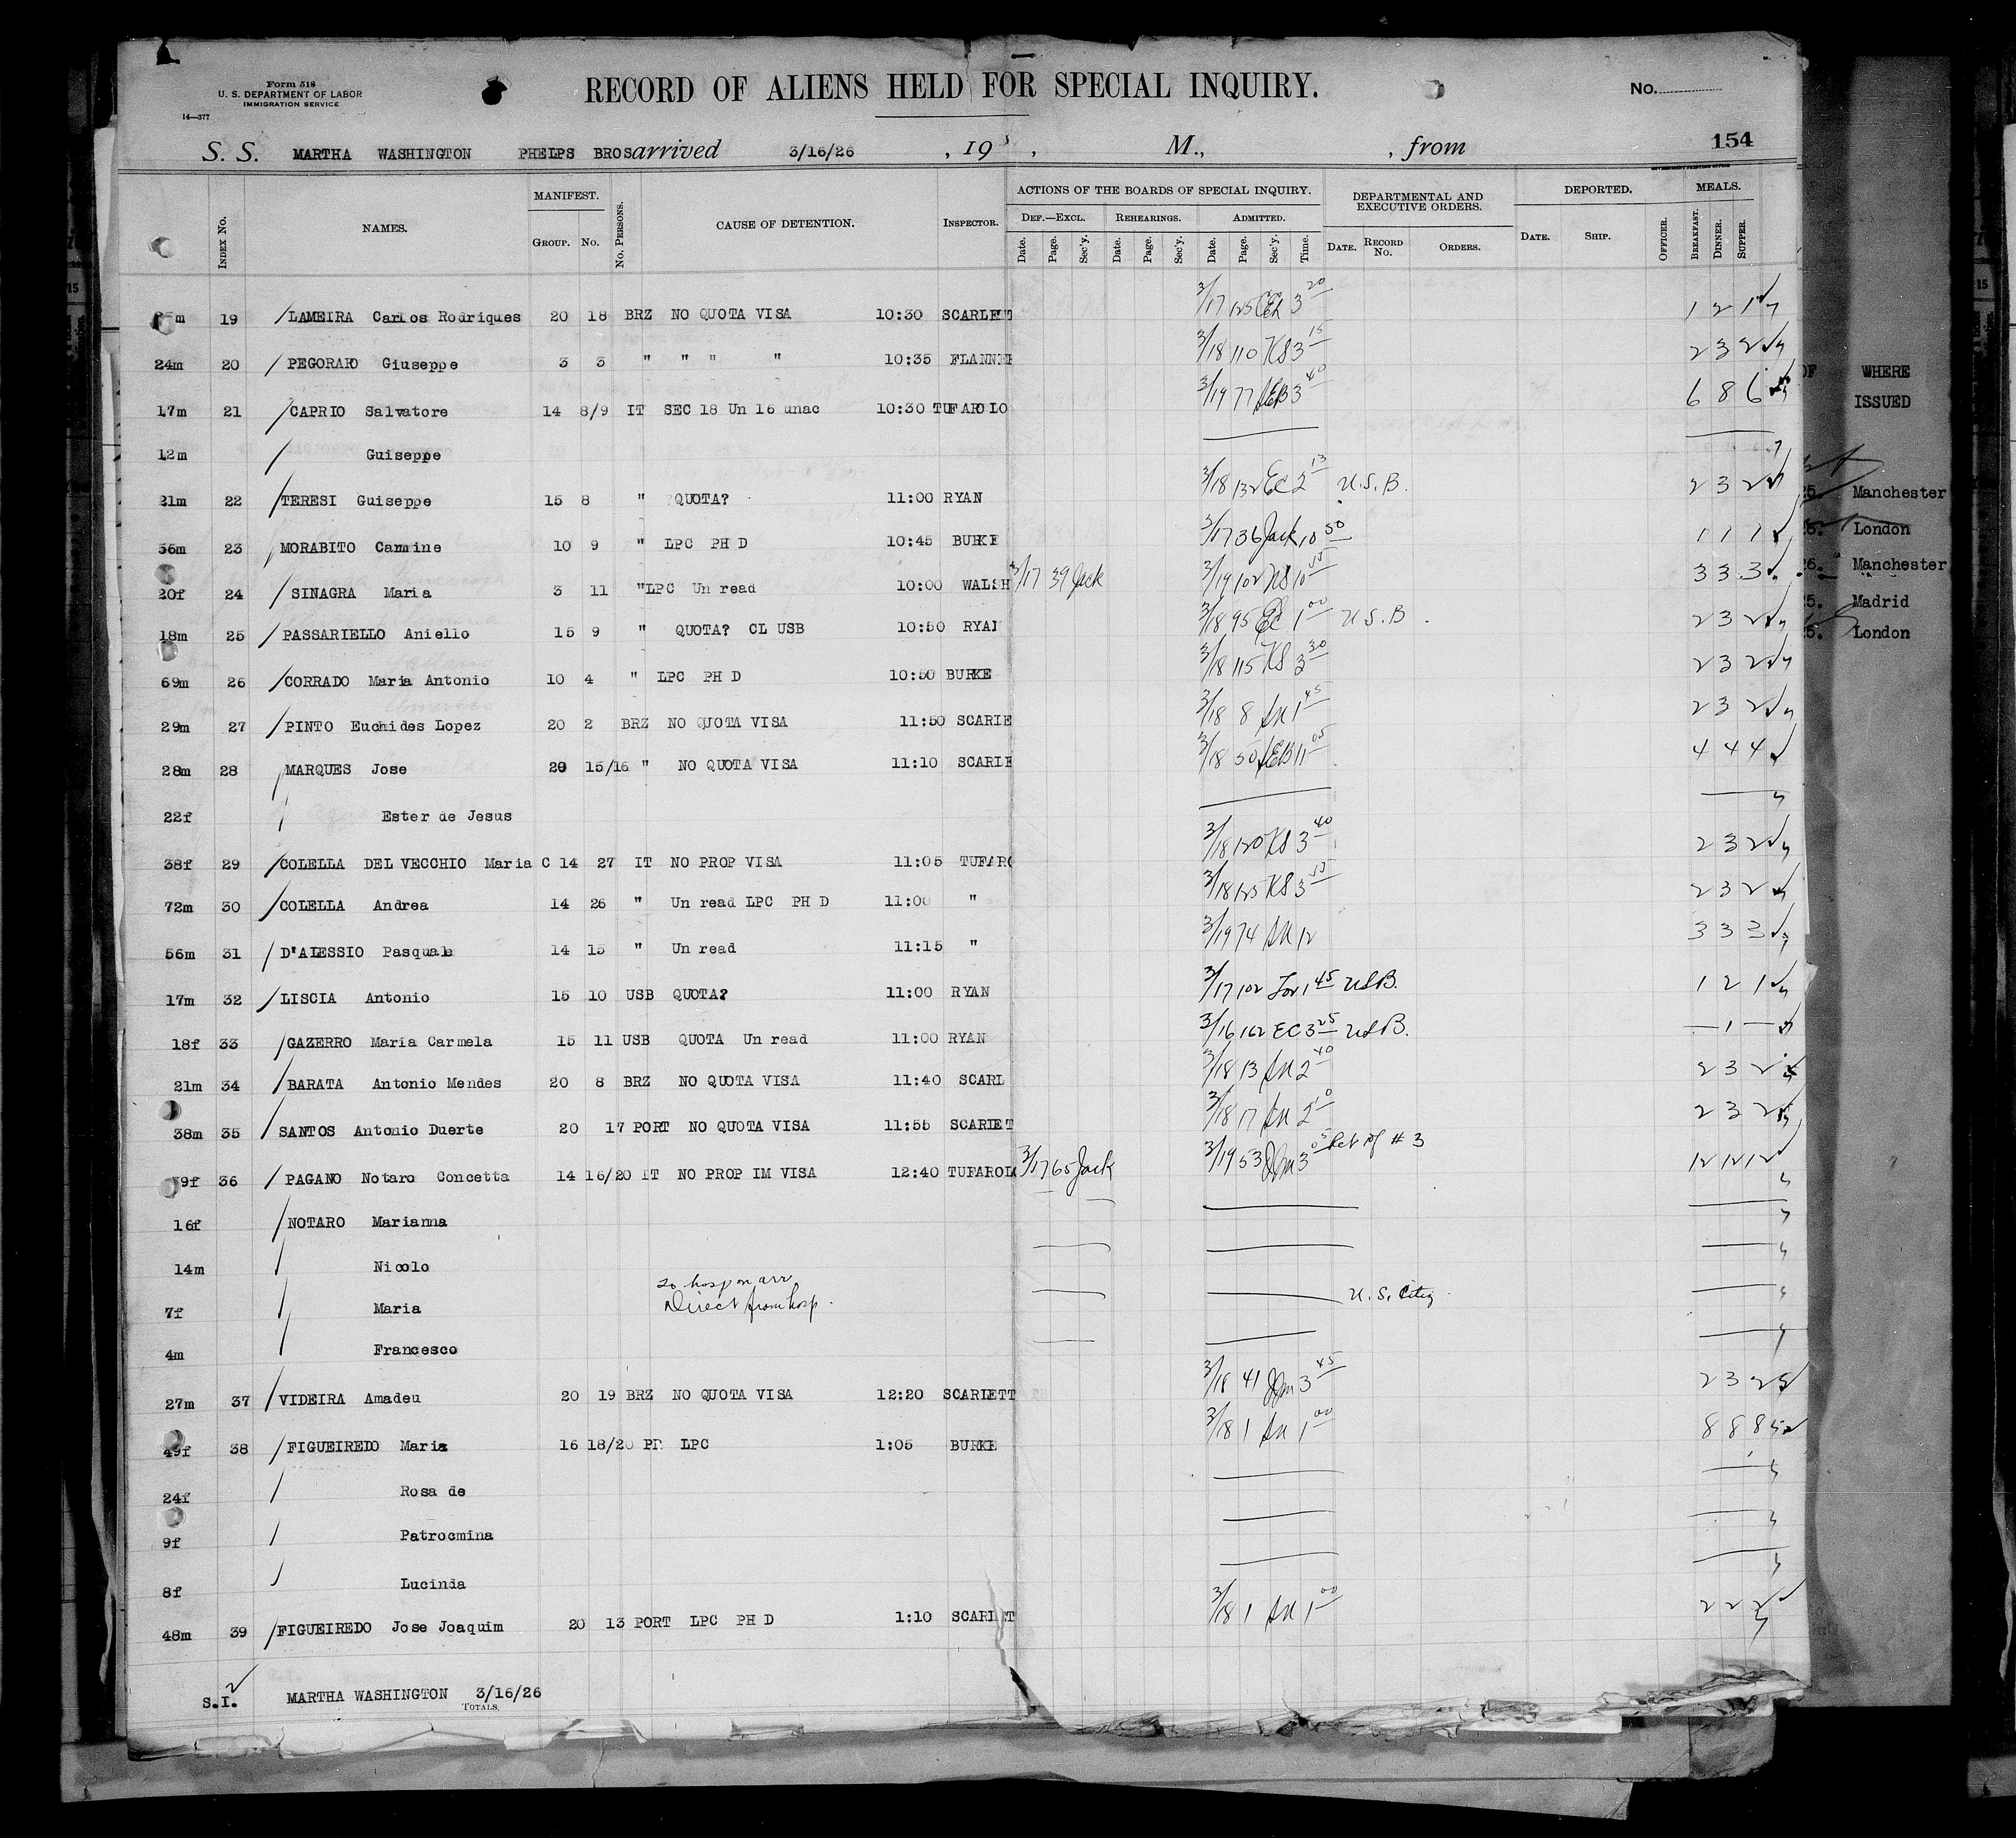 Form 518
U. S. DEPARTMENT OF LABOR
IMMIGRATION SERVICE
14—377
RECORD OF ALIENS HELD FOR SPECIAL INQUIRY.
No.
S. S. MARTHA WASHINGTON PHELPS BROS arrived 3/16/26 , 19 , M., , from 154
Index No. NAMES. MANIFEST. Group. No. No. Persons. CAUSE OF DETENTION. Inspector. ACTIONS OF THE BOARDS OF SPECIAL INQUIRY. Def.—Excl. Date. Page. Sec'y. Rehearings. Date. Page. Sec'y. Admitted. Date. Page. Sec'y. Time. DEPARTMENTAL AND EXECUTIVE ORDERS. Date. Record No. Orders. DEPORTED. Date. Ship. Officer. MEALS. Breakfast. Dinner. Supper.
19 LAMEIRA Carlos Rodriques 20 18 BRZ NO QUOTA VISA 10:30 SCARLETT 3/17 125 3 20 1 2 1
24m 20 PEGORARO Giuseppe 3 3 " " " " 10:35 FLANNER 3/18 110 KS 3 15 2 3 2
17m 21 CAPRIO Salvatore 14 8/9 IT SEC 18 Un 16 unac 10:30 TUFAROLO 3/19 77 3 40 6 8 6
12m Guiseppe
21m 22 TERESI Guiseppe 15 8 " QUOTA? 11:00 RYAN 3/18 132 EC 2 13 U.S.B. 2 3 2
36m 23 MORABITO Carmine 10 9 " LPC PH D 10:45 BURKE 3/17 36 Jack 10 50 1 1 1
20f 24 SINAGRA Maria 3 11 " LPC Un read 10:00 WALSH 3/17 39 Jack 3/19 102 KS 10 3 3 3
18m 25 PASSARIELLO Aniello 15 9 " QUOTA? CL USB 10:50 RYAN 3/18 95 EC 1 00 U.S.B. 2 3 2
69m 26 CORRADO Maria Antonio 10 4 " LPC PH D 10:50 BURKE 3/18 115 KS 3 30 2 3 2
29m 27 PINTO Euchides Lopez 20 2 BRZ NO QUOTA VISA 11:50 SCARLE 3/18 8 1 45 2 3 2
28m 28 MARQUES Jose 20 15/16 " NO QUOTA VISA 11:10 SCARLE 3/18 50 11 05 4 4 4
22f Ester de Jesus
38f 29 COLELLA DEL VECCHIO Maria C 14 27 IT NO PROP VISA 11:05 TUFARO 3/18 120 KS 3 40 2 3 2
72m 30 COLELLA Andrea 14 26 " Un read LPC PH D 11:00 " 3/18 125 KS 3 2 3 2
56m 31 D'ALESSIO Pasquale 14 15 " Un read 11:15 " 3/19 74 12 3 3 3
17m 32 LISCIA Antonio 15 10 USB QUOTA? 11:00 RYAN 3/17 102 1 45 USB. 1 2 1
18f 33 GAZERRO Maria Carmela 15 11 USB QUOTA Un read 11:00 RYAN 3/16 162 EC 3 25 USB. — 1 —
21m 34 BARATA Antonio Mendes 20 8 BRZ NO QUOTA VISA 11:40 SCARL 3/18 13 2 40 2 3 2
38m 35 SANTOS Antonio Duerte 20 17 PORT NO QUOTA VISA 11:55 SCARLET 3/18 17 2 2 3 2
36 PAGANO Notaro Concetta 14 16/20 IT NO PROP IM VISA 12:40 TUFAROLO 3/17 65 Jack 3/19 53 3 05 # 3 12 12 12
16f NOTARO Marianna
14m Nicolo
to hosp on arr
7f Maria Direct from hosp. U.S. Citz
4m Francesco
27m 37 VIDEIRA Amadeu 20 19 BRZ NO QUOTA VISA 12:20 SCARLETT 3/18 41 3 45 2 3 2
49f 38 FIGUEIREDO Maria 16 18/20 LPC 1:05 BURKE 3/18 1 1 00 8 8 8
24f Rosa de
9f Patrocmina
8f Lucinda
48m 39 FIGUEIREDO Jose Joaquim 20 13 PORT LPC PH D 1:10 SCARLET 3/18 1 1 00 2 2 2
S.I. MARTHA WASHINGTON 3/16/26
Totals.
WHERE
ISSUED
Manchester
London
Manchester
Madrid
London